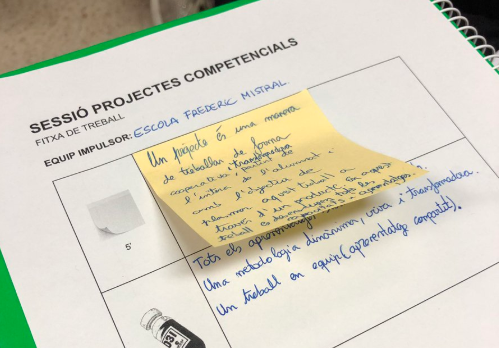 SESSIÓ PROJECTES COMPETENCIALS
FITXA DE TREBALL
EQUIP IMPULSOR: ESCOLA FREDERIC MISTRAL.
Un projecte és una manera
de treballar de forma
cooperativa,
l'interès de l'alumnat i
amb l'objectiu de
plasmar aquest treball a
través d'un producte. En aquest
treball es desenvolupen
Tots els aprenentatges
Una metodologia dinàmica, viva i transformadora.
Un treball en equip (aprenentatge compartit).
5'